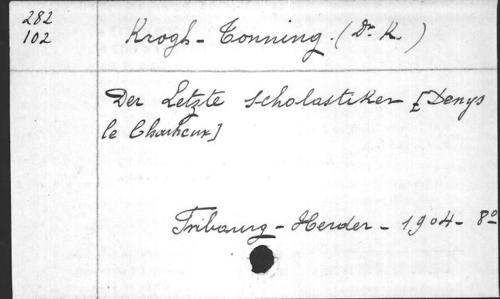 282
102
Krogh-Tonning. (Dr K.)
Der Letzte Scholastiker [Denys
le Chartreux]
Fribourg - Herder - 1904 - 8o